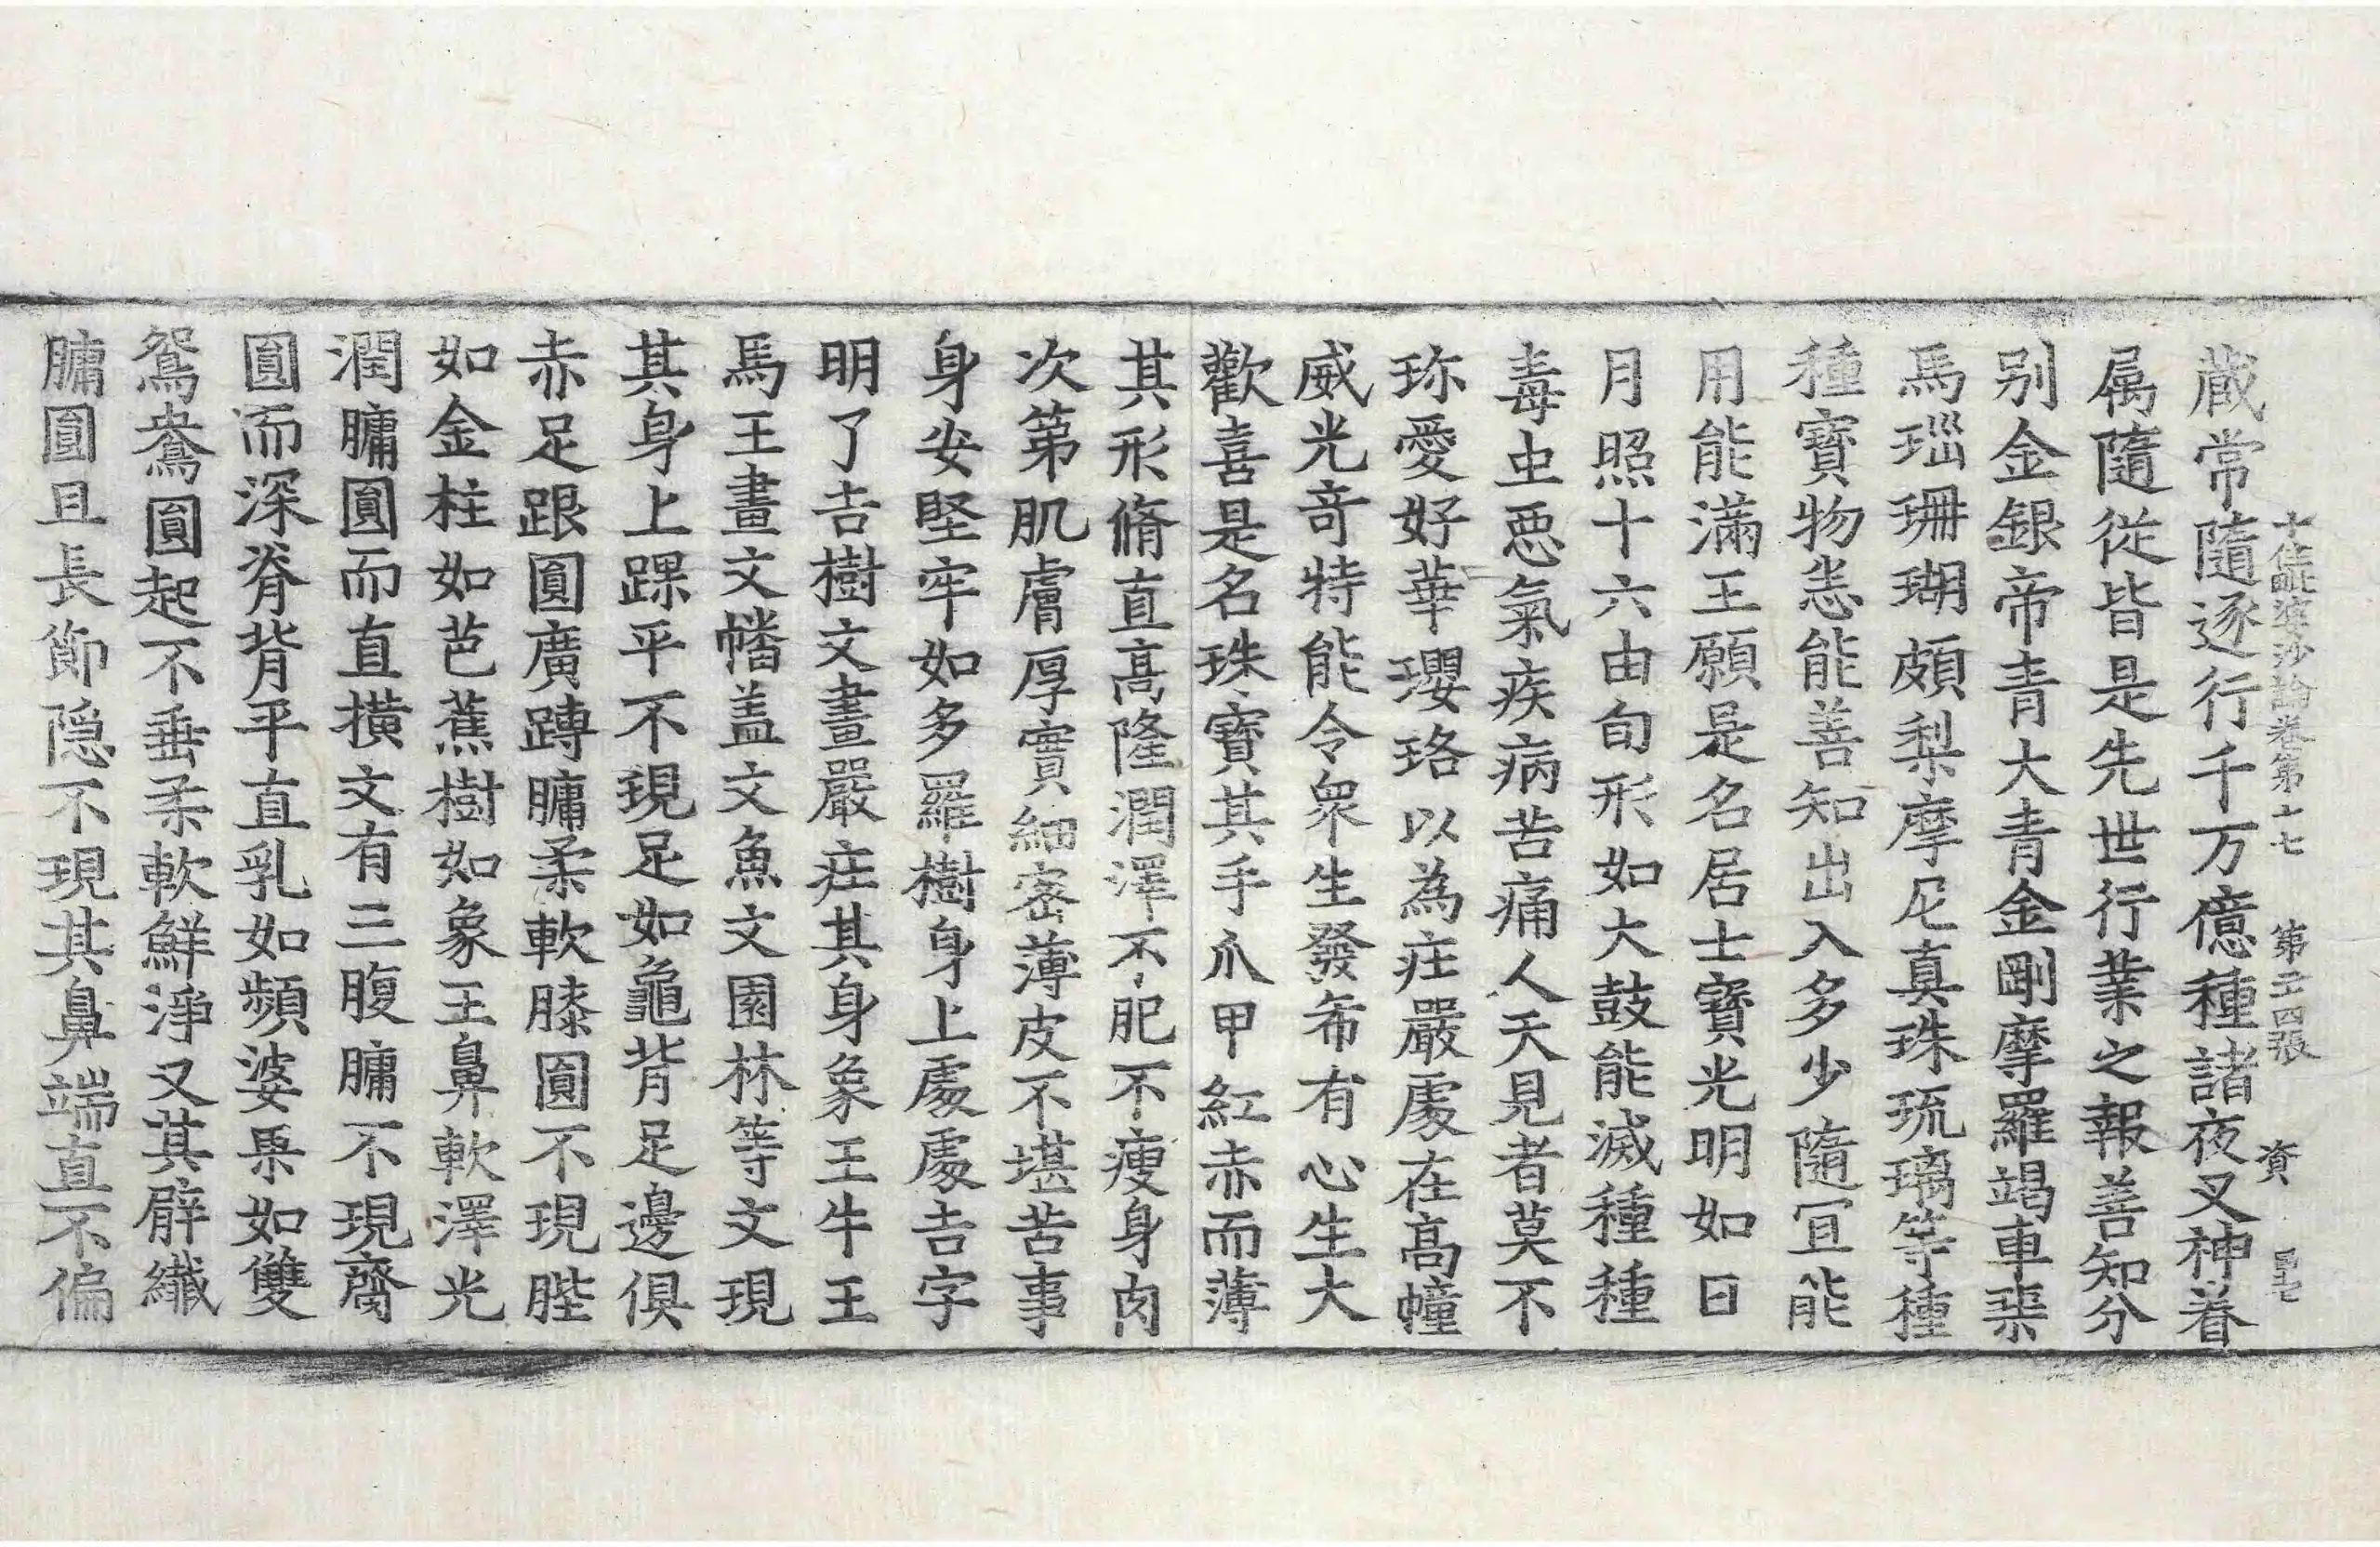 藏常隨逐行千万億種諸夜叉神眷
十住毗婆沙論卷第十七 第二四張 資
属隨從皆是先世行業之報善知分
别金銀帝青大青金剛摩羅竭車𤦲
馬瑙珊瑚頗梨摩尼真珠琉璃等種
種寶物悉能善知出入多少隨冝能
用能滿王願是名居士寶光明如日
月照十六由旬形如大鼓能滅種種
毒虫惡氣疾病苦痛人天見者莫不
珎愛好華瓔珞以為庄嚴處在高幢
威光竒特能令衆生發希有心生大
歡喜是名珠寶其手爪甲紅赤而薄
其形脩直高隆潤澤不肥不瘦身肉
次第肌膚厚實細密薄皮不堪苦事
身安堅牢如多羅樹身上處處吉字
明了吉樹文畫嚴庄其身象王牛王
馬王畫文幡盖文魚文園林等文現
其身上踝平不現足如龜背足邊俱
赤足跟圓廣䏝𦟛柔軟膝圓不現䏶
如金柱如芭蕉樹如象王鼻軟澤光
潤𦟛圓而直横文有三腹𦟛不現齎
圓而深脊背平直乳如頻婆果如雙
鴛鴦圓起不垂柔軟鮮淨又其臂纖
𦟛圓且長節隠不現其鼻端直不偏